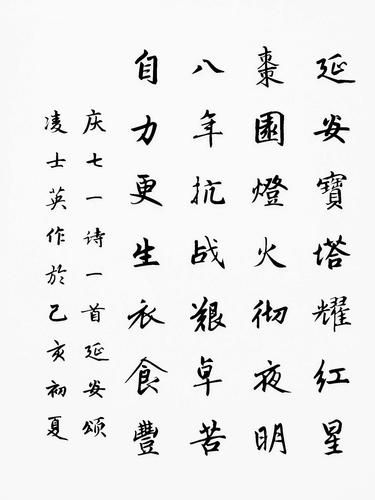 延安寶塔耀红星
棗園燈火彻夜明
八年抗战艱卓苦
自力更生衣食豐
庆七一诗一首延安頌
凌士英作於己亥初夏